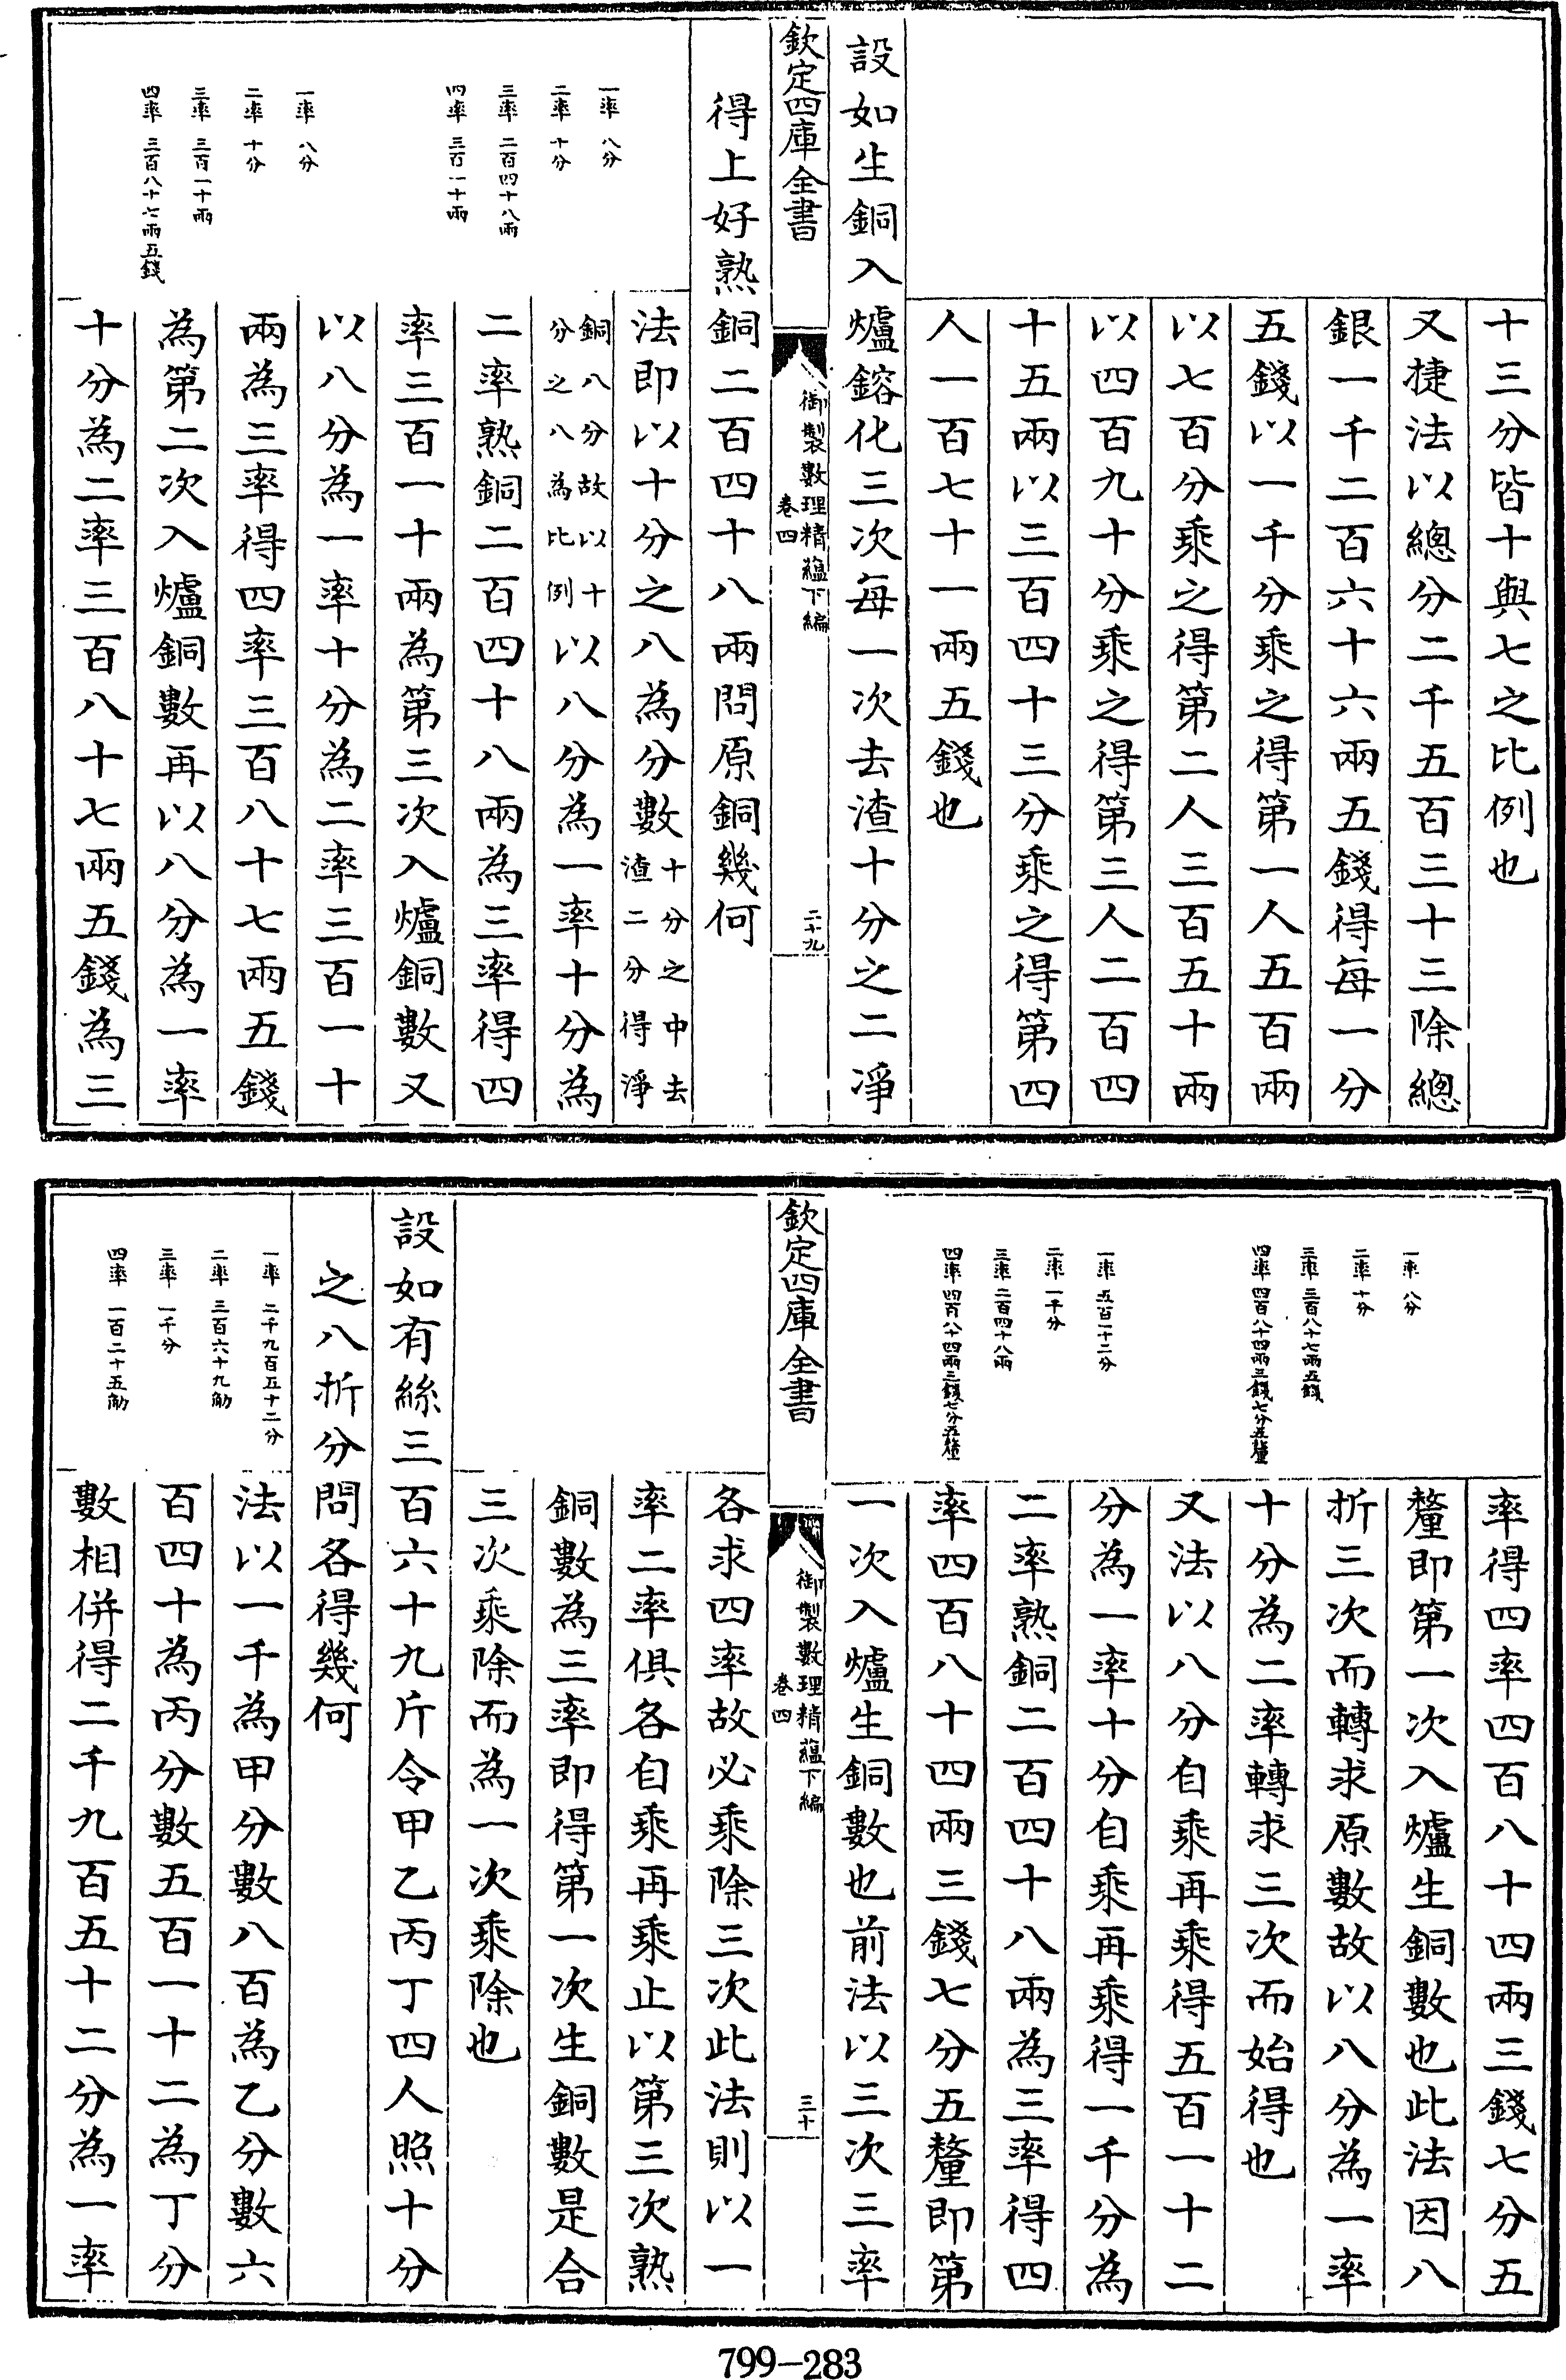 十三分皆十與七之比例也
又捷法以總分二千五百三十三除總
銀一千二百六十六兩五錢得每一分
五錢以一千分乘之得第一人五百兩
以七百分乘之得第二人三百五十兩
以四百九十分乘之得第三人二百四
十五兩以三百四十三分乘之得第四
人一百七十一兩五錢也
設如生銅入爐鎔化三次每一次去渣十分之二淨
欽定四庫全書
御製數理精蘊下編
卷四
二十九
得上好熟銅二百四十八兩問原銅幾何
一率 八分
二率 十分
三率 二百四十八兩
四率 三百一十兩
一率 八分
二率 十分
三率 三百一十兩
四率 三百八十七兩五錢
法即以十分之八為分數十分之中去
渣二分得淨
銅八分故以十
分之八為比例以八分為一率十分為
二率熟銅二百四十八兩為三率得四
率三百一十兩為第三次入爐銅數又
以八分為一率十分為二率三百一十
兩為三率得四率三百八十七兩五錢
為第二次入爐銅數再以八分為一率
十分為二率三百八十七兩五錢為三
一率 八分
二率 十分
三率 三百八十七兩五錢
四率 四百八十四兩三錢七分五釐
一率 五百一十二分
二率 一千分
三率 二百四十八兩
四率 四百八十四兩三錢七分五釐
率得四率四百八十四兩三錢七分五
釐即第一次入爐生銅數也此法因八
折三次而轉求原數故以八分為一率
十分為二率轉求三次而始得也
又法以八分自乘再乘得五百一十二
分為一率十分自乘再乘得一千分為
二率熟銅二百四十八兩為三率得四
率四百八十四兩三錢七分五釐即第
一次入爐生銅數也前法以三次三率
欽定四庫全書
御製數理精蘊下編
卷四
三十
各求四率故必乘除三次此法則以一
率二率俱各自乘再乘止以第三次熟
銅數為三率即得第一次生銅數是合
三次乘除而為一次乘除也
設如有絲三百六十九斤令甲乙丙丁四人照十分
之八折分問各得幾何
一率 二千九百五十二分
二率 三百六十九觔
三率 一千分
四率 一百二十五觔
法以一千為甲分數八百為乙分數六
百四十為丙分數五百一十二為丁分
數相併得二千九百五十二分為一率
799-283